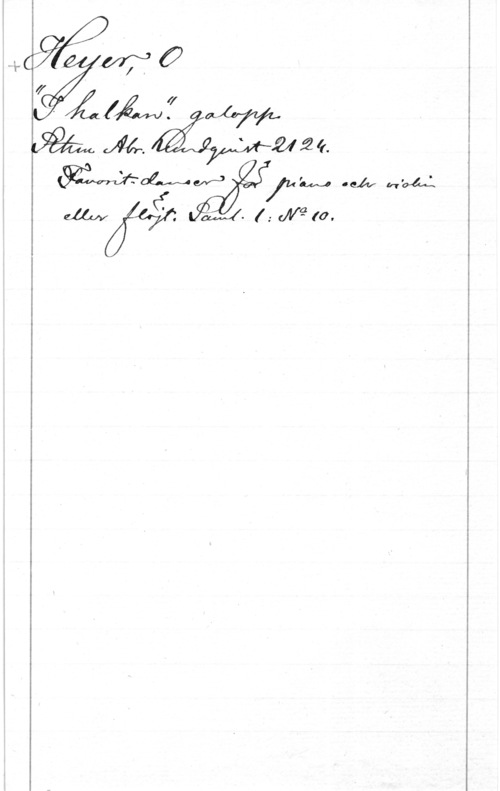 + Heyer, O
"I halkan". galopp.
Sthm Abr. Lundquist 2124.
Favorit-danser för piano och violin
eller flöjt. Saml. 1: Nº 10.